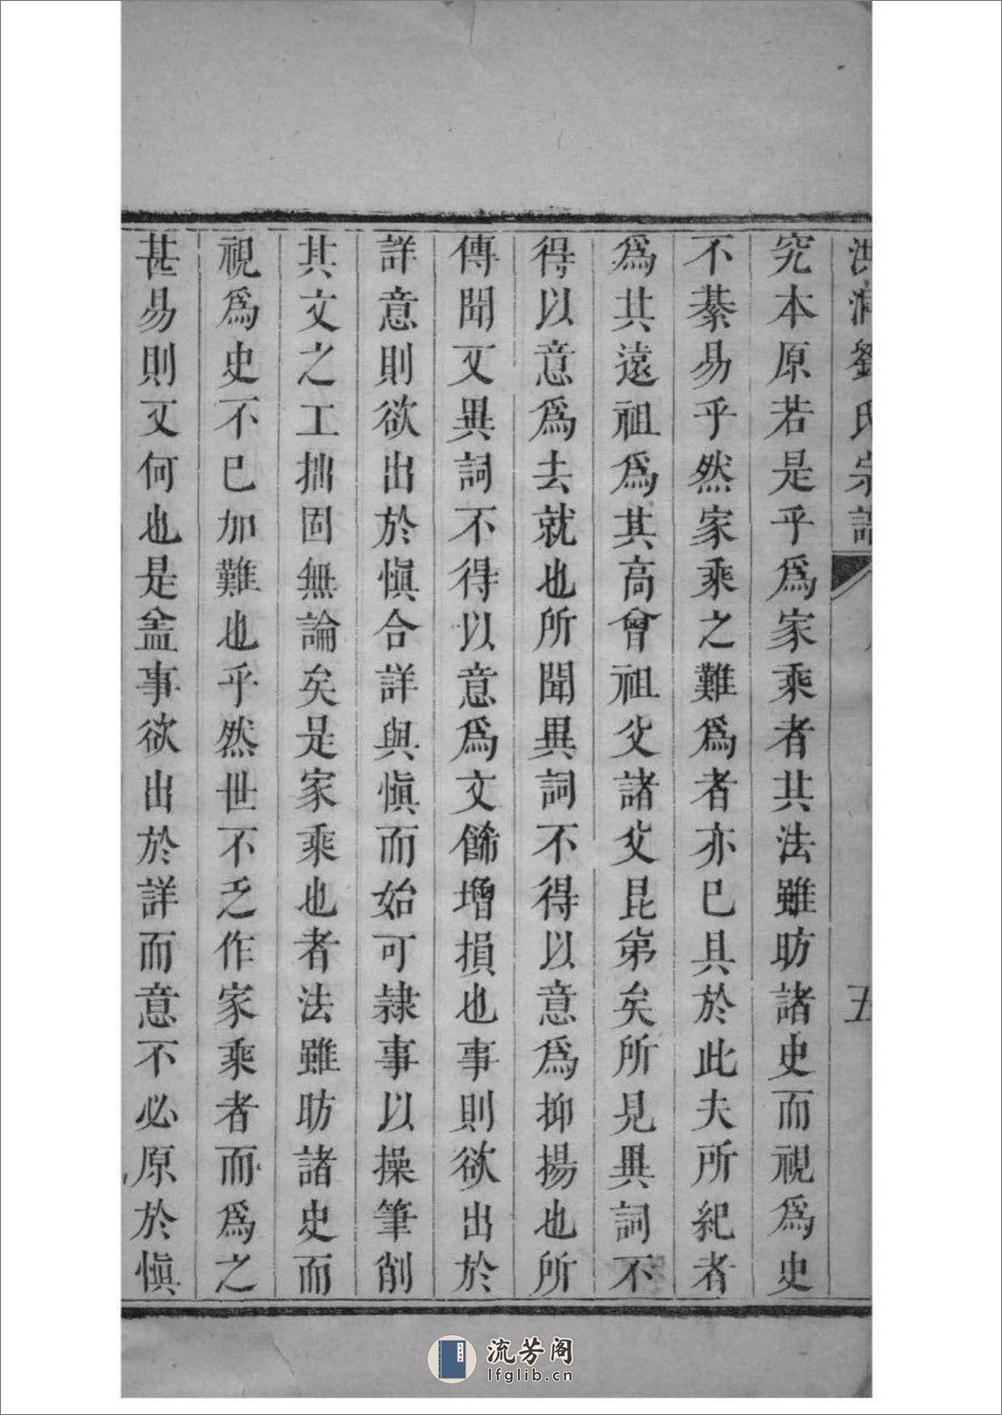 洪洞劉氏宗譜 五
究本原若是乎爲家乘者其法雖昉諸史而視爲史
不綦易乎然家乘之難爲者亦已具於此夫所紀者
爲其遠祖爲其高曾祖父諸父昆弟矣所見異詞不
得以意爲去就也所聞異詞不得以意爲抑揚也所
傳聞又異詞不得以意爲文餙增損也事則欲出於
詳意則欲出於愼合詳與愼而始可隸事以操筆削
其文之工拙固無論矣是家乘也者法雖昉諸史而
視爲史不已加難也乎然世不乏作家乘者而爲之
甚易則又何也是盖事欲出於詳而意不必原於愼
流芳阁
lfglib.cn